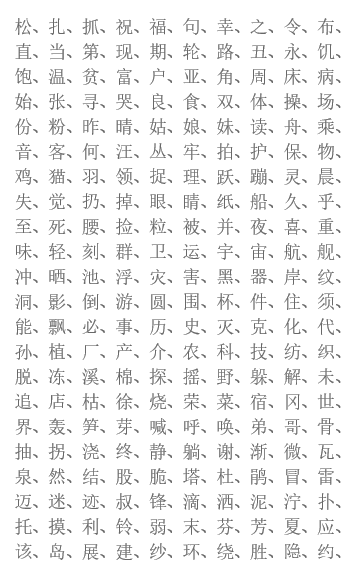 松、扎、抓、祝、福、句、幸、之、令、布、
直、当、第、现、期、轮、路、丑、永、饥、
饱、温、贫、富、户、亚、角、周、床、病、
始、张、寻、哭、良、食、双、体、操、场、
份、粉、昨、晴、姑、娘、妹、读、舟、乘、
音、客、何、汪、丛、牢、拍、护、保、物、
鸡、猫、羽、领、捉、理、跃、蹦、灵、晨、
失、觉、扔、掉、眼、睛、纸、船、久、乎、
至、死、腰、捡、粒、被、并、夜、喜、重、
味、轻、刻、群、卫、运、宇、宙、航、舰、
冲、晒、池、浮、灾、害、黑、器、岸、纹、
洞、影、倒、游、圆、围、杯、件、住、须、
能、飘、必、事、历、史、灭、克、化、代、
孙、植、厂、产、介、农、科、技、纺、织、
脱、冻、溪、棉、探、摇、野、躲、解、未、
追、店、枯、徐、烧、荣、菜、宿、冈、世、
界、轰、笋、芽、喊、呼、唤、弟、哥、骨、
抽、拐、浇、终、静、躺、谢、渐、微、瓦、
泉、然、结、股、脆、塔、杜、鹃、冒、雷、
迈、迷、迹、叔、锋、滴、洒、泥、泞、扑、
托、摸、利、铃、弱、末、芬、芳、夏、应、
该、岛、展、建、纱、环、绕、胜、隐、约、